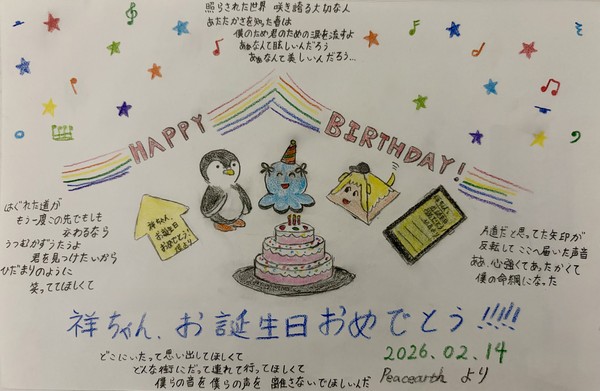 照らされた世界 咲き誇る大切な人
あたたかさを知った春は
僕のため君のための涙を流すよ
あぁなんて眩しいんだろう
あぁなんて美しいんだろう...
HAPPY BIRTHDAY!
祥ちゃん、
お誕生日
おめでとう!
より
はぐれた道が
もう一度この先でもしも
交わるなら
うつむかずうたうよ
君を見つけたいから
ひだまりのように
笑っててほしくて
片道だと思ってた矢印が
反転して ここへ届いた声音
ああ、心強くてあったかくて
僕の命綱になった
祥ちゃん、お誕生日おめでとう!!!!!
2026.02.14
Peacearth より
どこにいたって思い出してほしくて
どんな街にだって連れて行ってほしくて
僕らの音を僕らの声を 離さないでほしいんだ